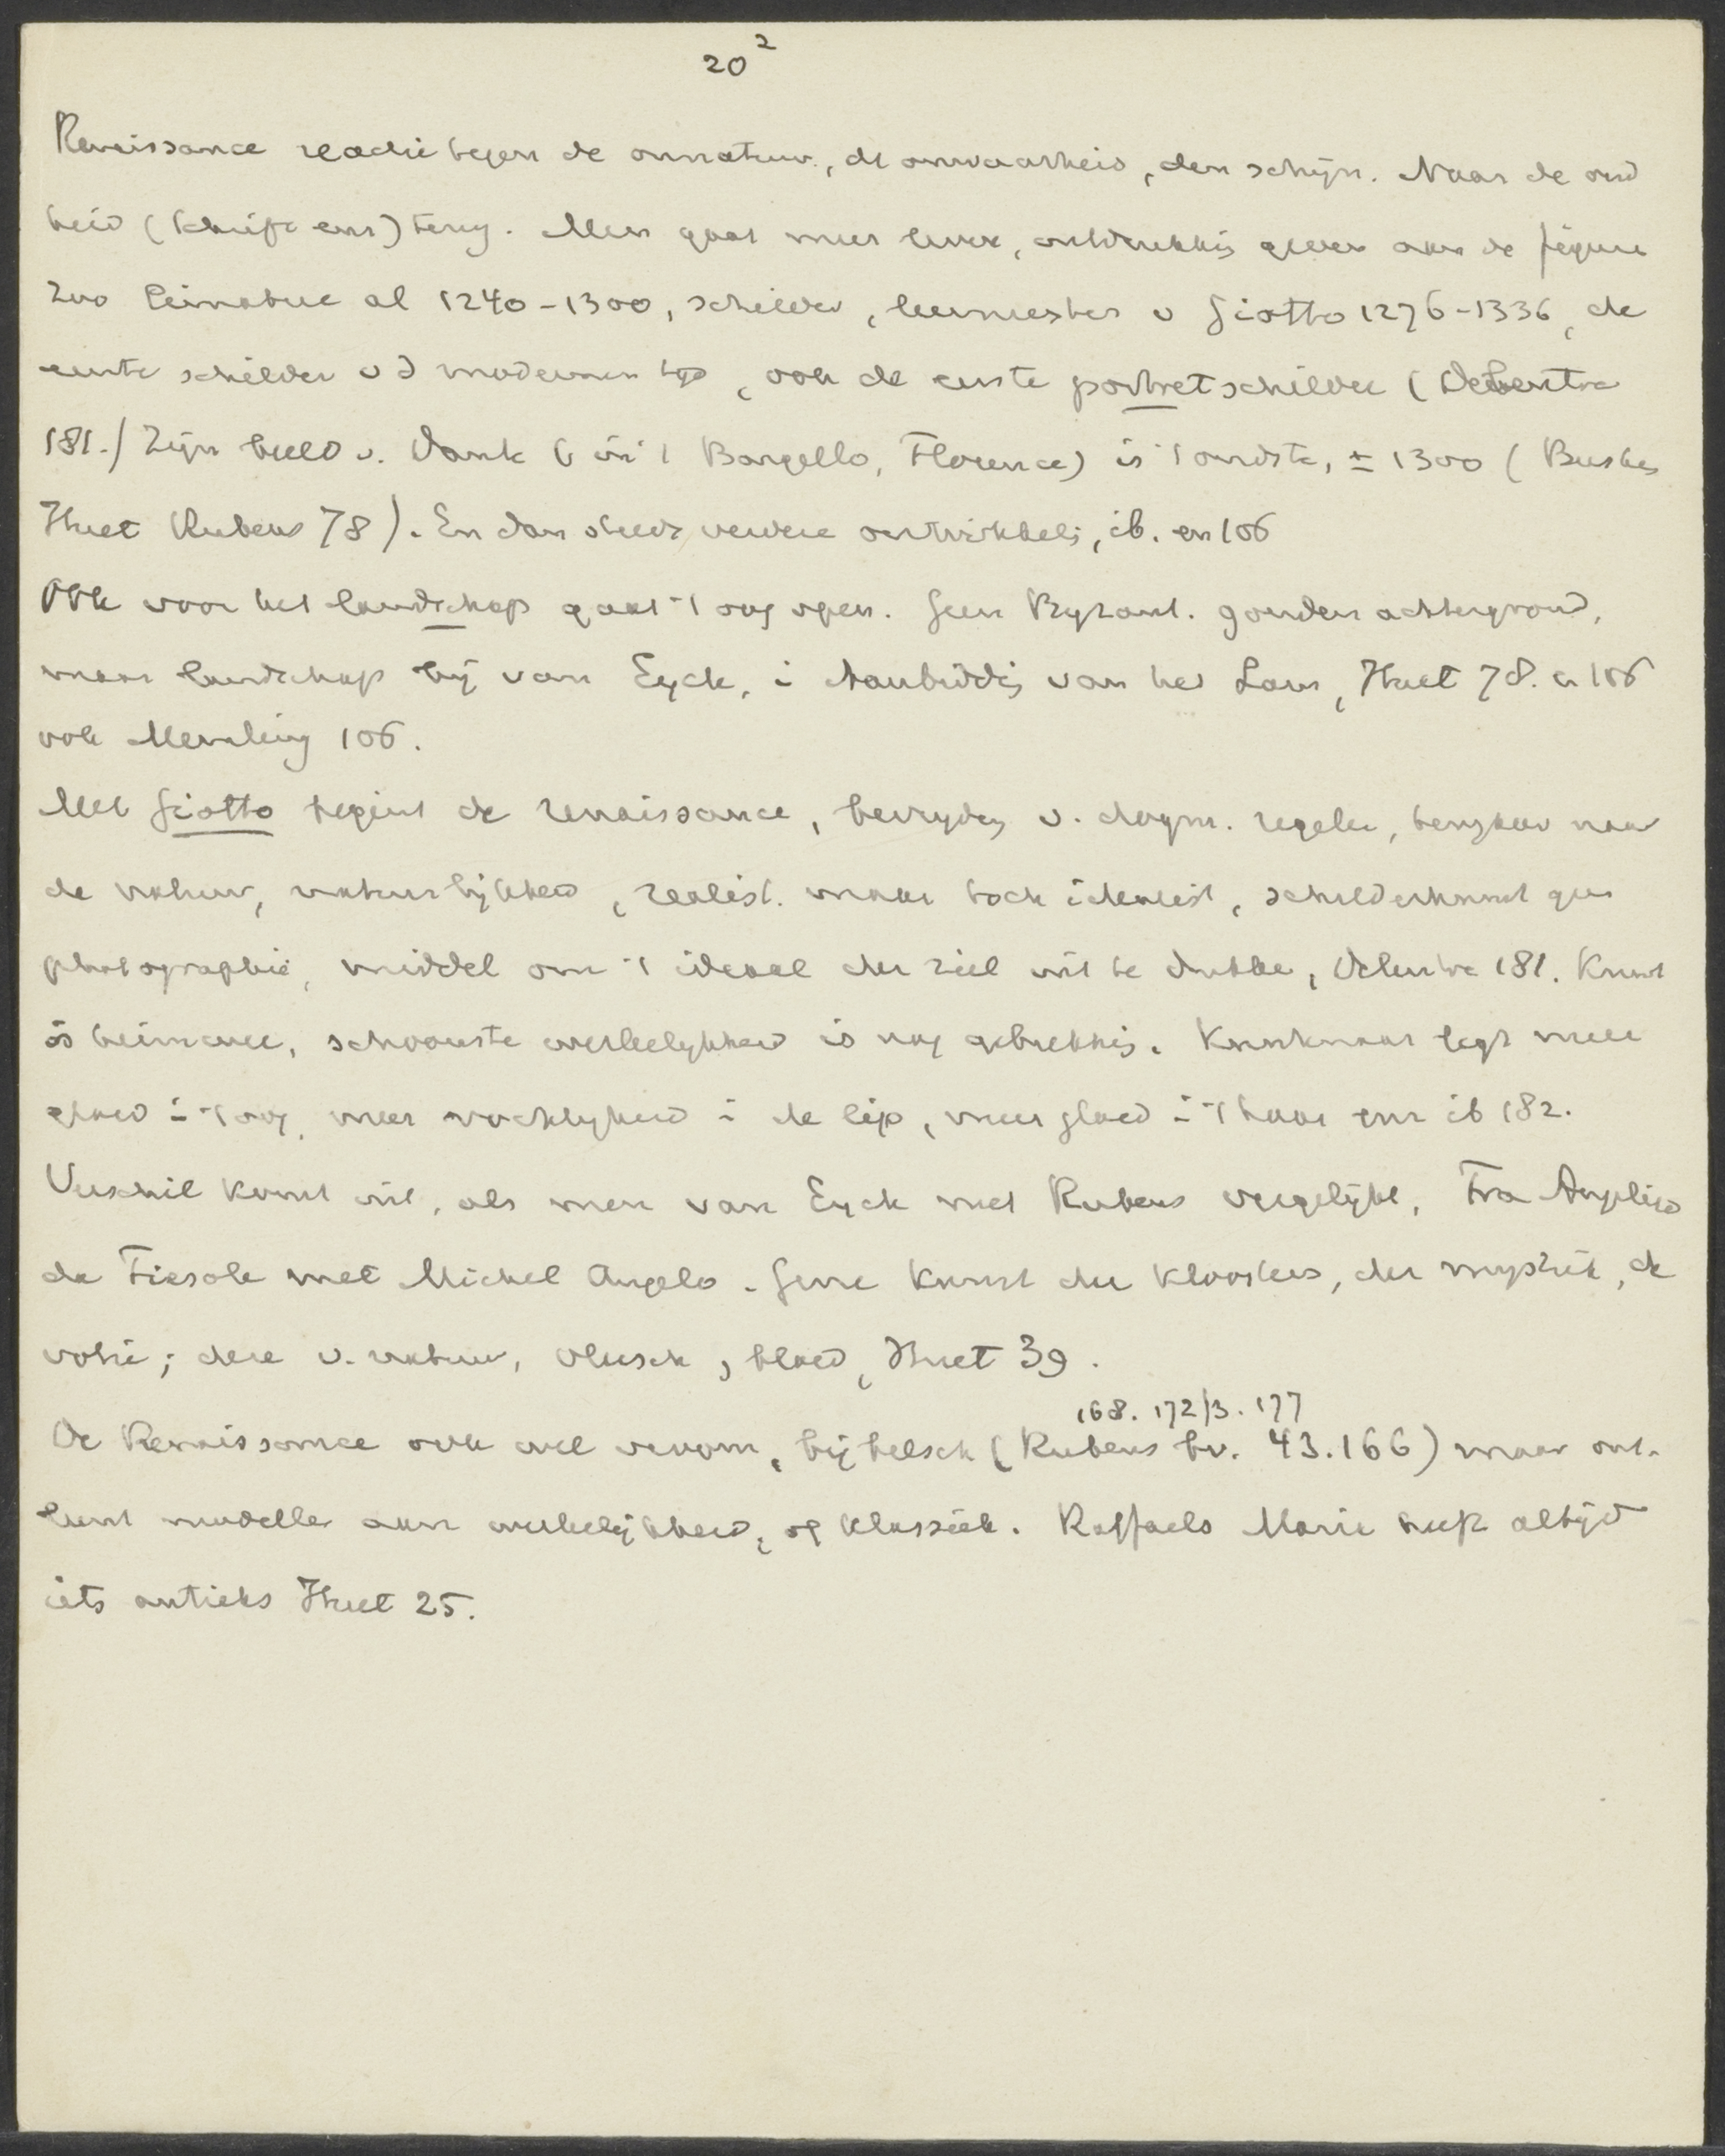 20²
Renaissance reactie tegen de onnatuur, de onwaarheid, den schijn. Naar de oud
heid (Schrift enz) terug. Men gaat meer leven, uitdrukkig geven aan de figure
Zoo Cimabue al 1240-1300, schilder, leermeester v Giotto 1276-1336, de
eerste schilder v d modernen tijd, ook de eerste portretschilder (
181.) Zijn beeld v. Dante ( in 't Bargello, Florence) is 't oudste, ± 1300 (Busken
Huet Rubens 78). En dan steeds verdere ontwikkelg, ib. en 106
Ook voor het landschap gaat 't oog open. Geen Byzant. gouden achtergrond,
maar landschap bij van Eyck, i Aanbiddig van het Lam, Huet 78. en 106
ook Memling 106.
Met Giotto begint de renaissance, bevrijdg v. dogm. regelen, terugkeer naar
de natuur, natuurlijkheid, realist. maar toch idealist, schilderkunst geen
photographie, middel om 't ideaal der ziel uit te drukke, 181. Kunst
is heimwee, schoonste werkelijkheid is nog gebrekkig. Kunstenaar legt meer
gloed i 't oog, meer zachtheid i de lip, meer gloed i 't haar enz ib 182.
Verschil komt uit, als men van Eyck met Rubens vergelijkt, Fra Angelico
da Fiesole met Michel Angelo. Gene kunst der kloosters, der mystiek, de
votie; deze v. natuur, vleesch, bloed, Huet 39.
168. 172/3. 177
De Renaissance ook wel vroom, bijbelsch (Rubens bv. 43.166) maar ont-
leent modelle aan werkelijkheid, of klassiek. Raffaels Marie heeft altijd
iets antieks Huet 25.